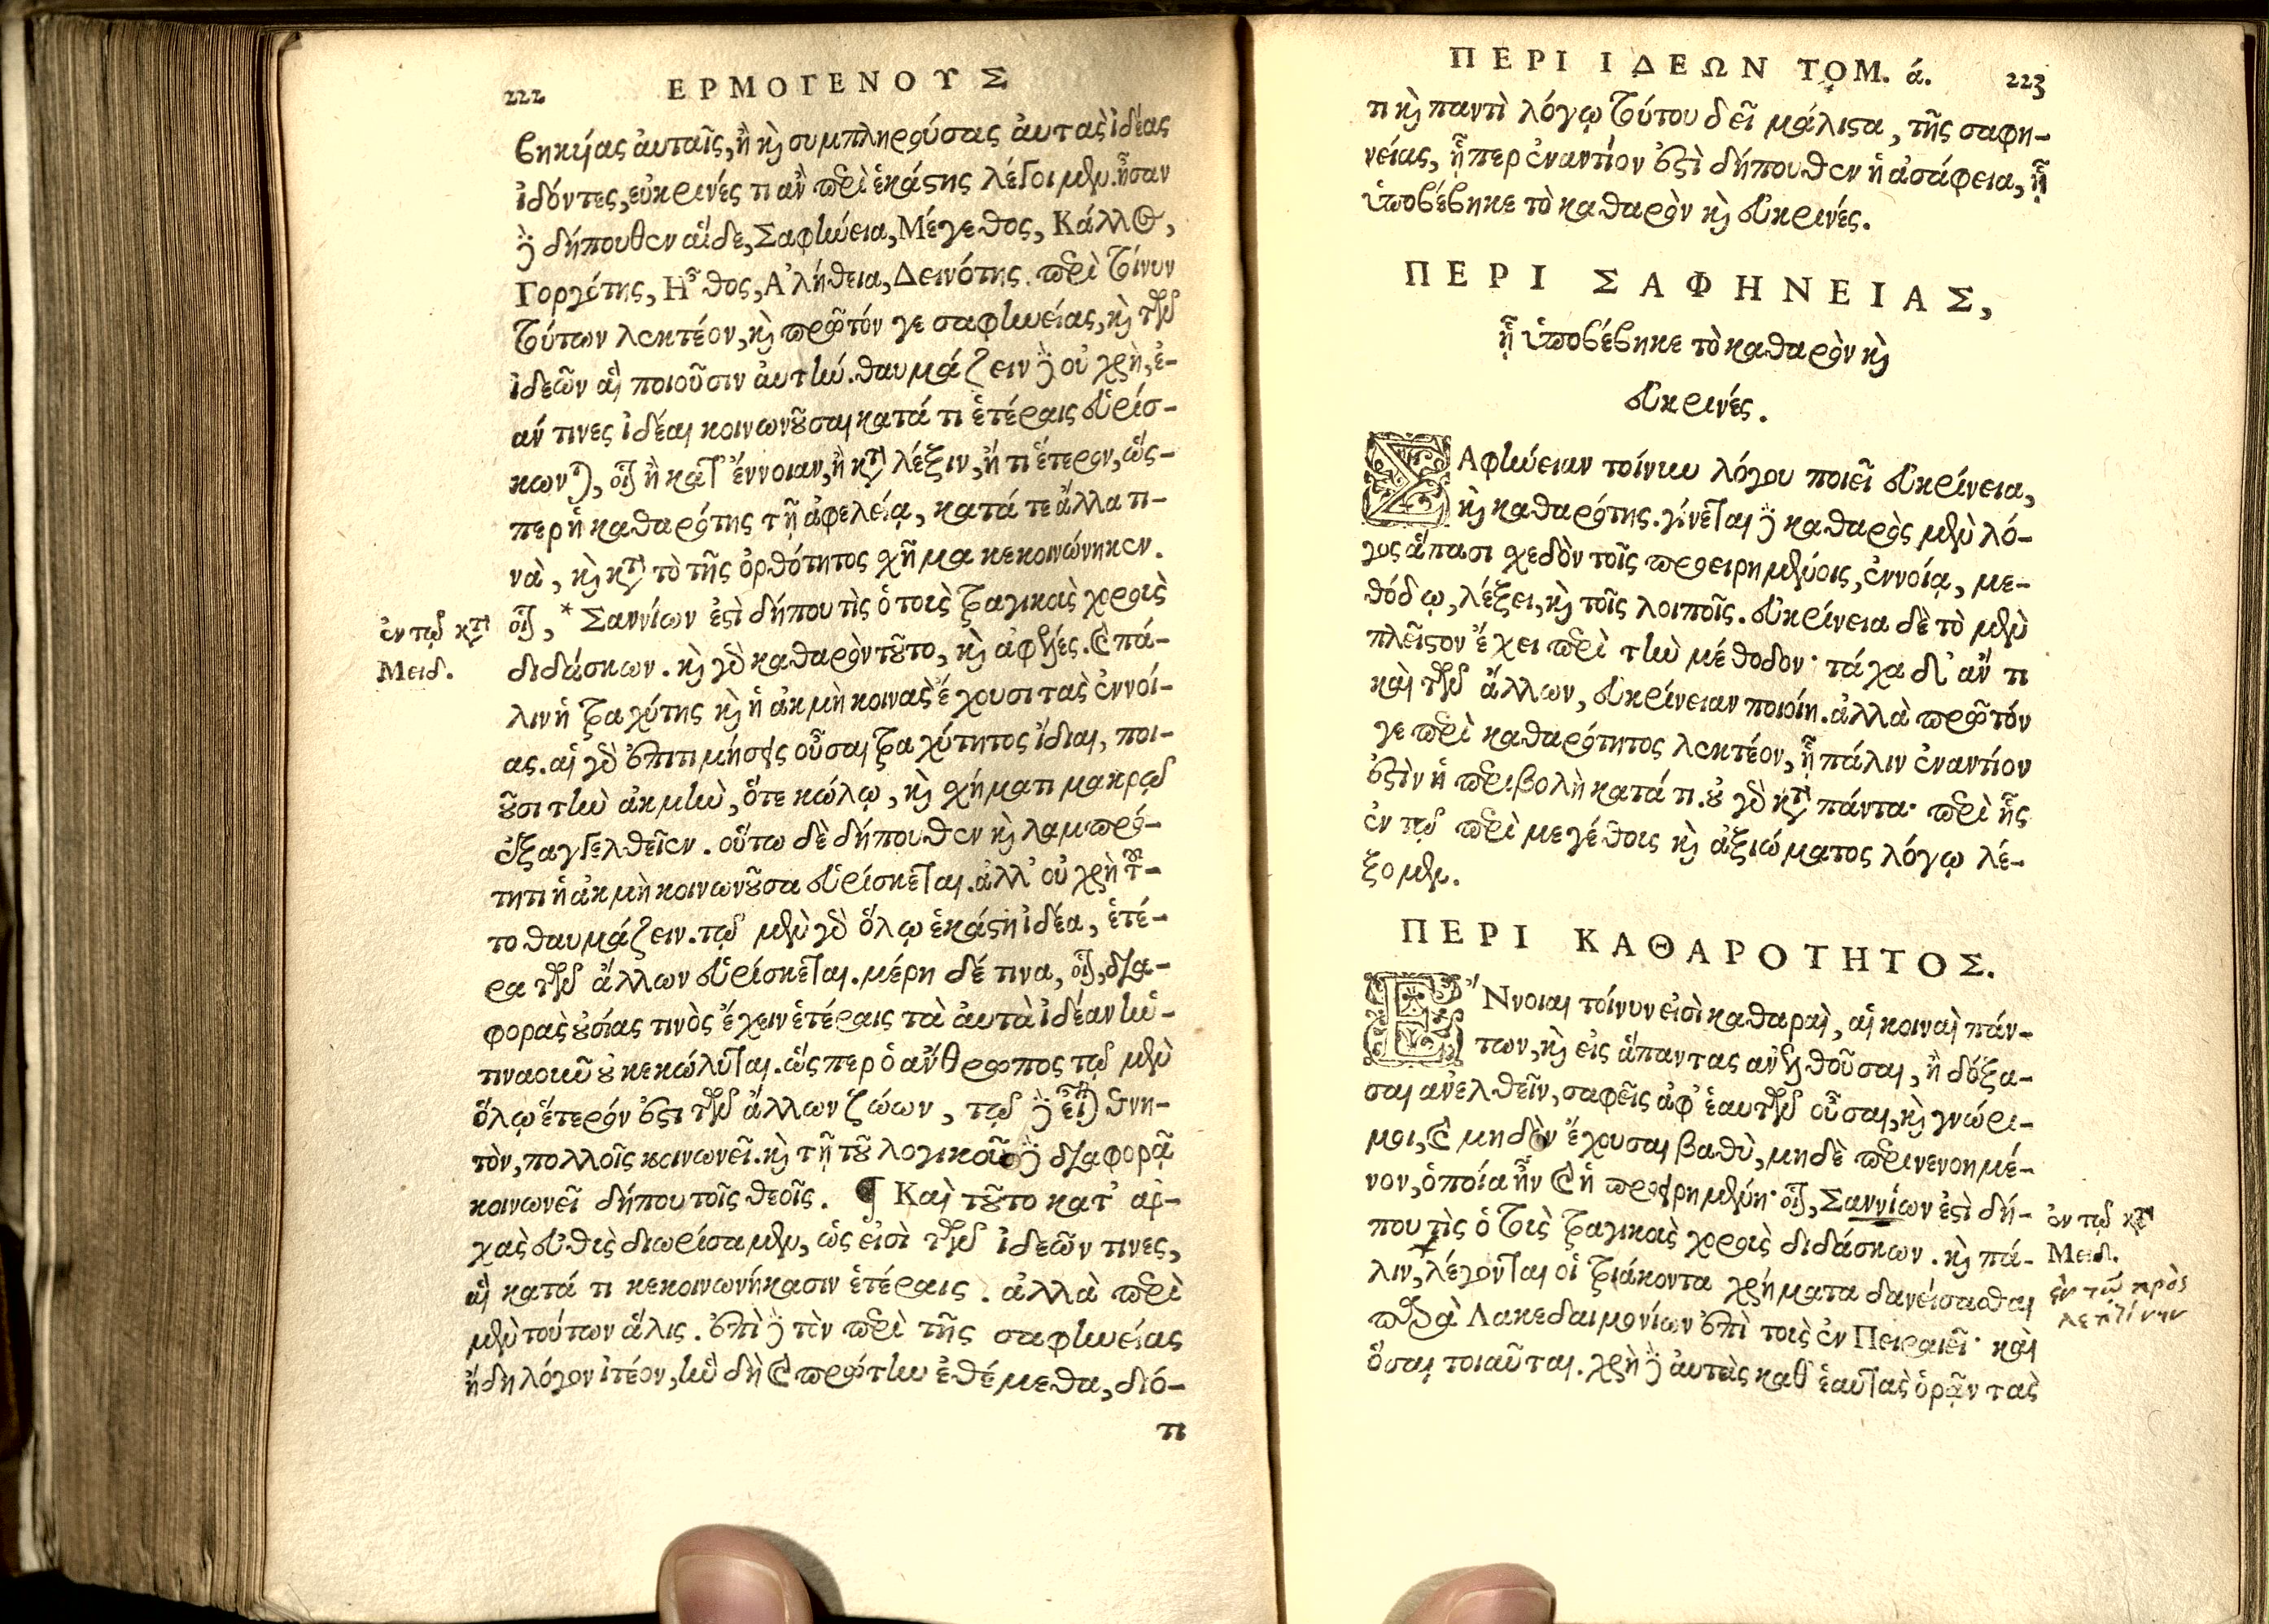 222 ΕΡΜΟΓΕΝΟΥΣ
βηκυίας αὐταῖς, ἢ καὶ συμπληρούσας αὐτὰς ἰδέας
ἰδόντες, εὐκρινές τι ἂν περὶ ἑκάστης λέγοιμεν. ἦσαν
δὲ δήπουθεν αἵδε, Σαφήνεια, Μέγεθος, Κάλλος,
Γοργότης, Ἦθος, Ἀλήθεια, Δεινότης. περὶ τοίνυν
τούτων λεκτέον, καὶ πρῶτόν γε σαφηνείας, καὶ τῶν
ἰδεῶν αἳ ποιοῦσιν αὐτήν. θαυμάζειν δὲ οὐ χρὴ, ἐ-
άν τινες ἰδέαι κοινωνοῦσαι κατά τι ἑτέραις εὑρίσ-
κωνται, οἷον ἢ κατ' ἔννοιαν, ἢ κατὰ λέξιν, ἤ τι ἕτερον, ὥς-
περ ἡ καθαρότης τῇ ἀφελείᾳ, κατά τε ἄλλα τι-
νὰ, καὶ κατὰ τὸ τῆς ὀρθότητος σχῆμα κεκοινώνηκεν.
οἷον, * Σαννίων ἐστὶ δήπου τὶς ὁ τοὺς τραγικοὺς χοροὺς
διδάσκων. καὶ γὰρ καθαρὸν τοῦτο, καὶ ἀφελές. καὶ πά-
λιν ἡ τραχύτης καὶ ἡ ἀκμὴ κοινὰς ἔχουσι τὰς ἐννοί-
ας. αἱ γὰρ ἐπιτιμήσεις οὖσαι τραχύτητος ἴδιαι, ποι-
οῦσι τὴν ἀκμὴν, ὅτε κώλῳ, καὶ σχήματι μακρῷ
ἐξαγγελθεῖεν. οὕτω δὲ δήπουθεν καὶ λαμπρό-
τητι ἡ ἀκμὴ κοινωνοῦσα εὑρίσκεται. ἀλλ' οὐ χρὴ τοῦ-
το θαυμάζειν. τῷ μὲν γὰρ ὅλῳ ἑκάστη ἰδέα, ἑτέ-
ρα τῶν ἄλλων εὑρίσκεται. μέρη δέ τινα, οἷον, δια-
φορὰς οὐσίας τινὸς ἔχειν ἑτέραις τὰ αὐτὰ ἰδέαν ἡν-
τιναοῦν οὐ κεκώλυται. ὥς περ ὁ ἄνθρωπος τῷ μὲν
ὅλῳ ἕτερόν ἐστι τῶν ἄλλων ζώων, τῷ δὲ εἶναι θνη-
τὸν, πολλοῖς κοινωνεῖ. καὶ τῇ τοῦ λογικοῦ δὲ διαφορᾷ
κοινωνεῖ δήπου τοῖς θεοῖς. ¶ Καὶ τοῦτο κατ' ἀρ-
χὰς εὐθὺς διωρίσαμεν, ὡς εἰσὶ τῶν ἰδεῶν τινες,
αἳ κατά τι κεκοινωνήκασιν ἑτέραις. ἀλλὰ περὶ
μὲν τούτων ἅλις. ἐπὶ δὲ τὸν περὶ τῆς σαφηνείας
ἤδη λόγον ἰτέον, ἣν δὴ καὶ πρώτην ἐθέμεθα, διό-
τι
ἐν τῷ κατὰ
Μειδ.
ΠΕΡΙ ΙΔΕΩΝ ΤΟΜ. ά. 223
τι καὶ παντὶ λόγῳ τούτου δεῖ μάλιστα, τῆς σαφη-
νείας, ᾗπερ ἐναντίον ἐστὶ δήπουθεν ἡ ἀσάφεια, ᾗ
ὑποβέβηκε τὸ καθαρὸν καὶ εὐκρινές.
ΠΕΡΙ ΣΑΦΗΝΕΙΑΣ,
ᾗ ὑποβέβηκε τὸ καθαρὸν καὶ
εὐκρινές.
ΣΑφήνειαν τοίνυν λόγου ποιεῖ εὐκρίνεια,
καὶ καθαρότης. γίνεται δὲ καθαρὸς μὲν λό-
γος ἅπασι σχεδὸν τοῖς προειρημένοις, ἐννοίᾳ, με-
θόδῳ, λέξει, καὶ τοῖς λοιποῖς. εὐκρίνεια δὲ τὸ μὲν
πλεῖστον ἔχει περὶ τὴν μέθοδον· τάχα δ' ἄν τι
καὶ τῶν ἄλλων, εὐκρίνειαν ποιοίη. ἀλλὰ πρῶτόν
γε περὶ καθαρότητος λεκτέον, ᾗ πάλιν ἐναντίον
ἐστὶν ἡ περιβολὴ κατά τι. οὐ γὰρ κατὰ πάντα· περὶ ἧς
ἐν τῷ περὶ μεγέθους καὶ ἀξιώματος λόγῳ λέ-
ξομεν.
ΠΕΡΙ ΚΑΘΑΡΟΤΗΤΟΣ.
ἜΝνοιαι τοίνυν εἰσὶ καθαραὶ, αἱ κοιναὶ πάν-
των, καὶ εἰς ἅπαντας ἀνελθοῦσαι, ἢ δόξα-
σαι ἀνελθεῖν, σαφεῖς ἀφ' ἑαυτῶν οὖσαι, καὶ γνώρι-
μοι, καὶ μηδὲν ἔχουσαι βαθὺ, μηδὲ περινενοημέ-
νον, ὁποία ἦν καὶ ἡ προειρημένη· οἷον, Σαννίων ἐστὶ δή-
που τὶς ὁ τοὺς τραγικοὺς χοροὺς διδάσκων. καὶ πά-
λιν, λέγονται οἱ τριάκοντα χρήματα δανείσασθαι
παρὰ Λακεδαιμονίων ἐπὶ τοὺς ἐν Πειραιεῖ· καὶ
ὅσαι τοιαῦται. χρὴ δὲ αὐτὰς καθ' ἑαυτὰς ὁρᾷν τὰς
ἐν τῷ κατὰ
Μειδ.
ἐν τῷ πρὸς
λεπτίνην